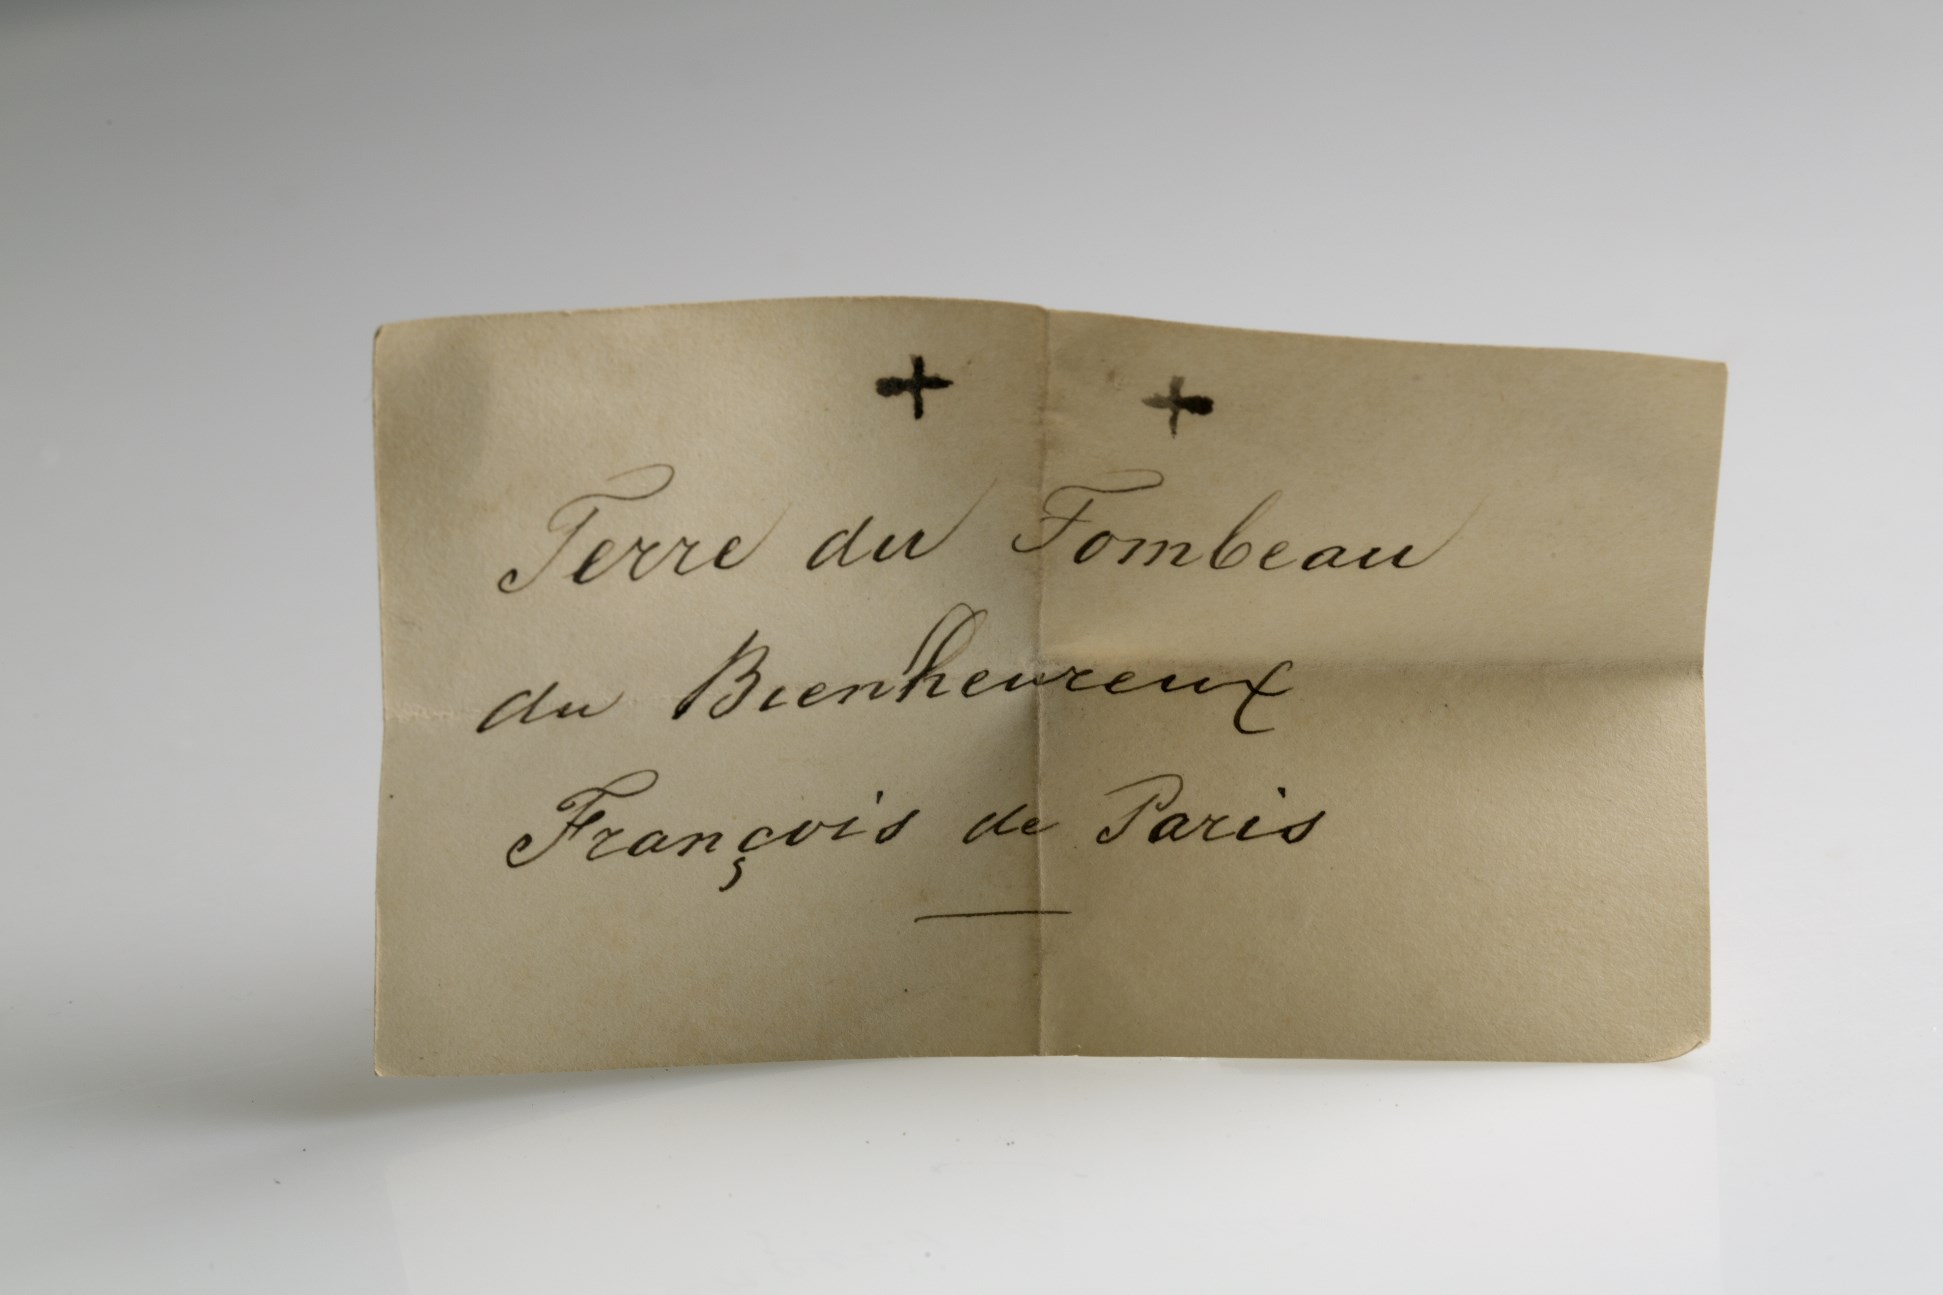 + +
Terre du Tombeau
du Bienheureux
François de Paris